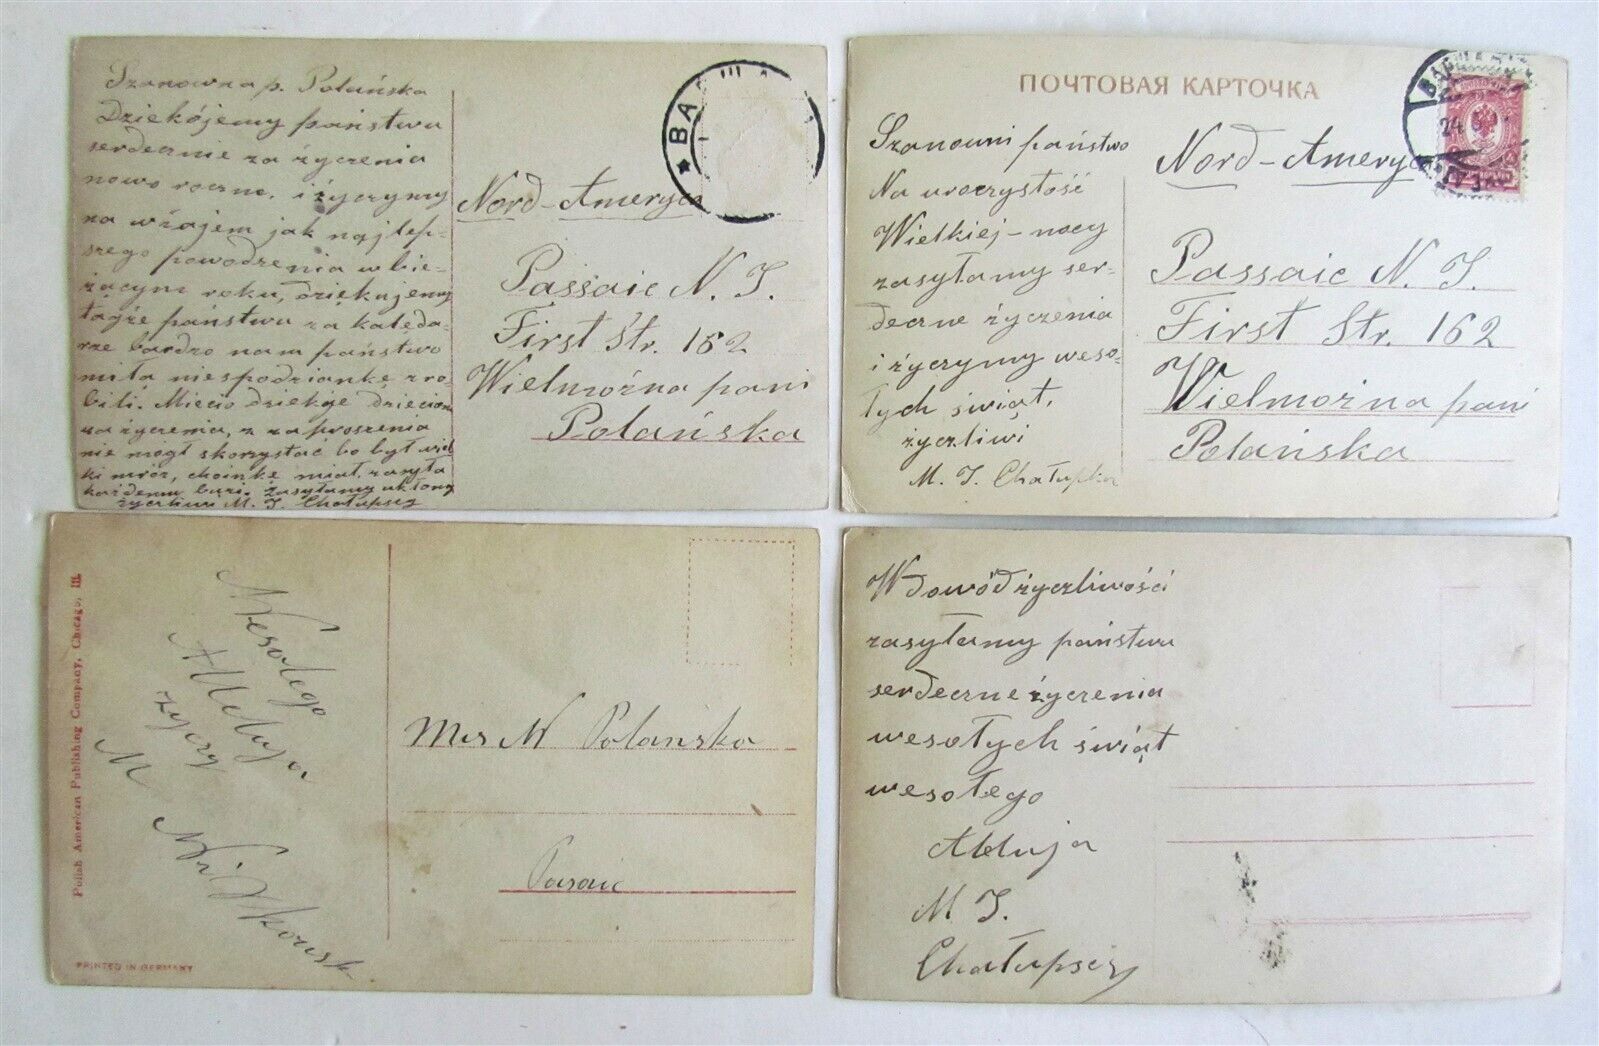 Szanowna p. Polańska
Dziekójemy państwu
serdecznie za życzenia
nowo roczne, i życzymy
na wzajem jak najlep-
szego powodzenia w bie-
żącym roku, dziękujemy
także państwu za kaleda-
rze bardzo nam państwo
miła niespodziankę zro-
bili. Miecio dziekuje
za życzenia, z zaproszenia
nie mógł skorzystać bo był
mróz, choinke miał, zasyła
każdemu buzi. zasyłamy ukłony
życzliwi M. J. Chałupscy
BA
Nord-Ameryca
Passaic N. J.
First Str. 162
Wielmożna pani
Polańska
ПОЧТОВАЯ КАРТОЧКА
Szanowni państwo
Na uroczystość
Wielkiej-nocy
zasyłamy ser-
deczne życzenia
i życzymy weso-
łych świąt,
życzliwi
M. J. Chałupka
24
Nord-Ameryca
Passaic N. J.
First Str. 162
Wielmożna pani
Polańska
Polish American Publishing Company, Chicago, Ill.
Wesołego
Alleluja
życzy
M
PRINTED IN GERMANY
Mrs W Polańska
Pasaic
W dowód życzliwości
zasyłamy państwu
serdeczne życzenia
wesołych świąt
wesołego
Alleluja
M J.
Chałupscy